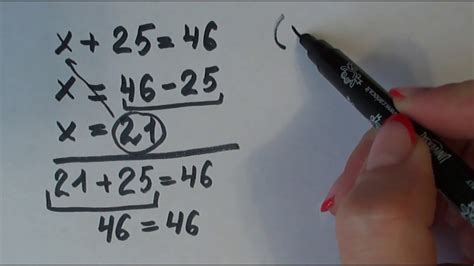 x + 25 = 46
x = 46 - 25
x = 21
21 + 25 = 46
46 = 46
(